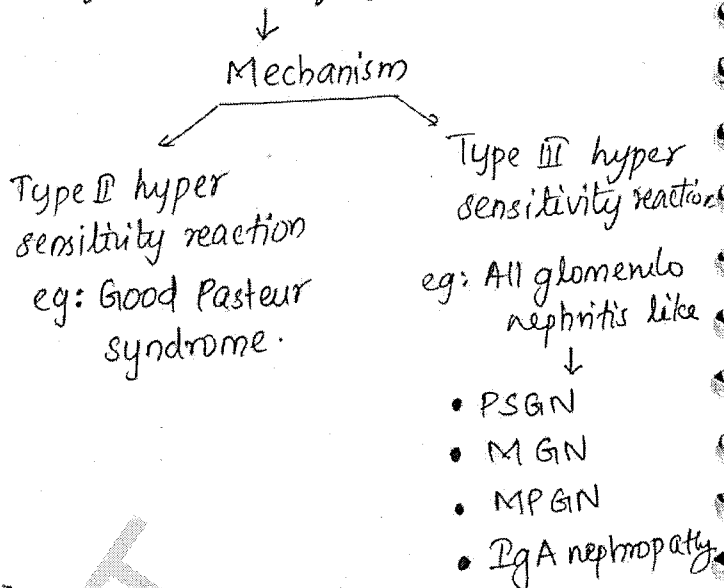 Mechanism
Type II hyper
sensitivity reaction
eg: Good Pasteur
syndrome.
Type III hyper
sensitivity reaction
eg: All glomerulo
nephritis like
• PSGN
• MGN
• MPGN
• IgA nephropathy